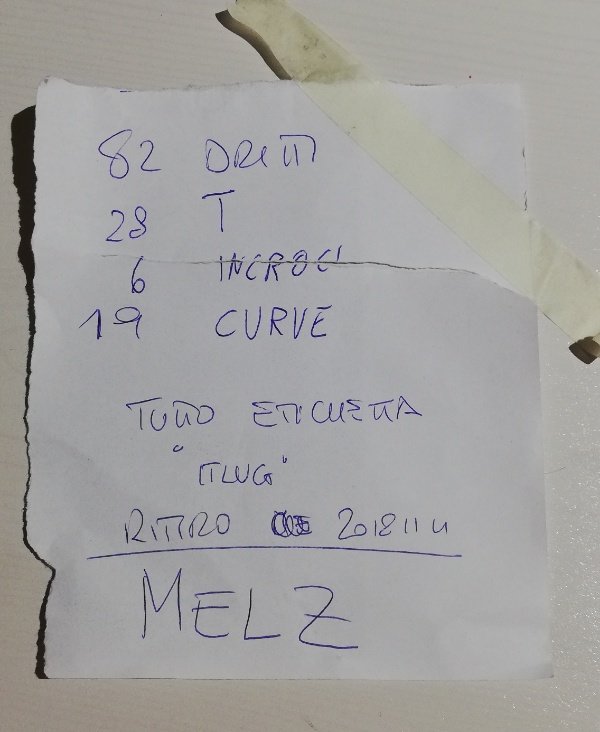 82 DRITTI
28 T
6 INCROCI
19 CURVE
TUTTO ETICHETTA
"ITLUG"
RITIRO 20181111
MELZ